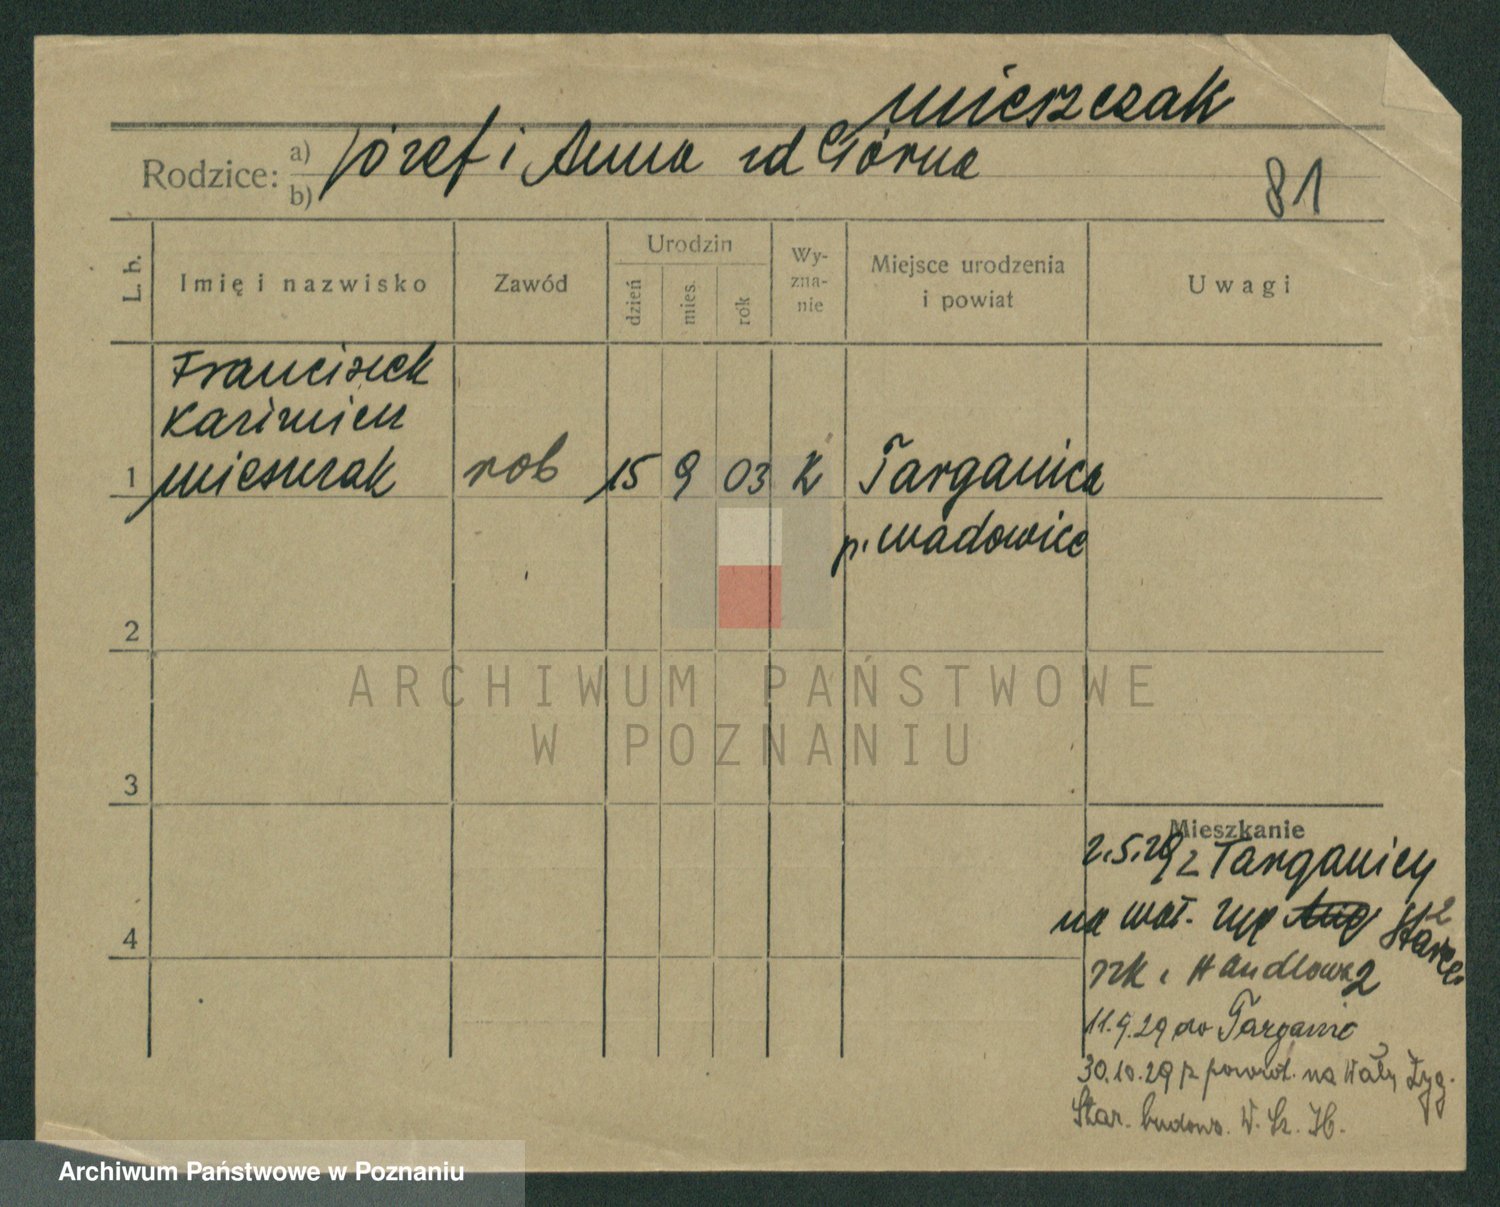 Mieszczak
Rodzice: a) b) Józef i Anna zd Górna
81
L. b.
Imię i nazwisko
Zawód
Urodzin
dzień
mies.
rok
Wy-
zna-
nie
Miejsce urodzenia
i powiat
Uwagi
Franciszek
Kazimierz
1 Mieszczak rob 15 9 03 K Targanica
p. Wadowice
2
3
4
Mieszkanie
2.5.29 z Targanicy
na Wał. Zyg Star 2
szk. Handlowa
11.9.29 do Targanic
30.10.29 z powrot. na Wały Zyg.
Star. budowa W. Sz. H.
ARCHIWUM PAŃSTWOWE
W POZNANIU
Archiwum Państwowe w Poznaniu